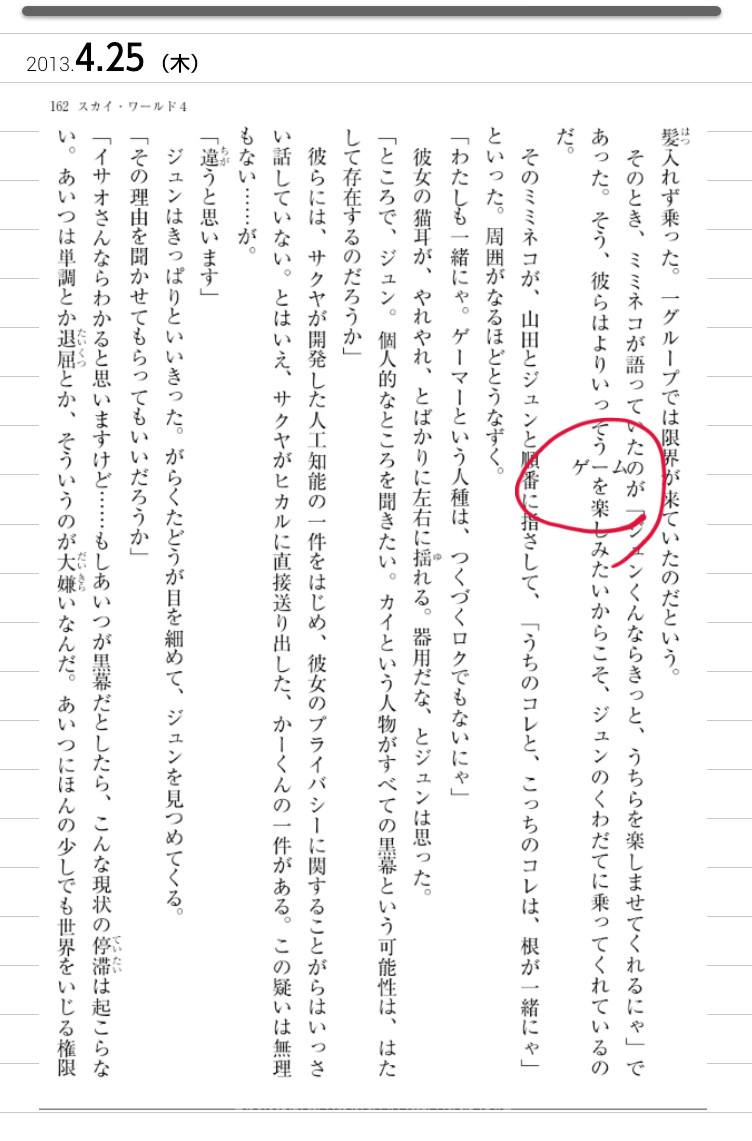 2013.4.25（木）
162 スカイ・ワールド4
髪入れず乗った。一グループでは限界が来ていたのだという。
そのとき、ミミネコが語っていたのが「ジュンくんならきっと、うちらを楽しませてくれるにゃ」で
あった。そう、彼らはよりいっそうゲームを楽しみたいからこそ、ジュンのくわだてに乗ってくれているの
だ。
そのミミネコが、山田とジュンと順番に指さして、「うちのコレと、こっちのコレは、根が一緒にゃ」
といった。周囲がなるほどとうなずく。
「わたしも一緒にゃ。ゲーマーという人種は、つくづくロクでもないにゃ」
彼女の猫耳が、やれやれ、とばかりに左右に揺れる。器用だな、とジュンは思った。
「ところで、ジュン。個人的なところを聞きたい。カイという人物がすべての黒幕という可能性は、はた
して存在するのだろうか」
彼らには、サクヤが開発した人工知能の一件をはじめ、彼女のプライバシーに関することがらはいっさ
い話していない。とはいえ、サクヤがヒカルに直接送り出した、かーくんの一件がある。この疑いは無理
もない……が。
「違うと思います」
ジュンはきっぱりといいきった。がらくたどうが目を細めて、ジュンを見つめてくる。
「その理由を聞かせてもらってもいいだろうか」
「イサオさんならわかると思いますけど……もしあいつが黒幕だとしたら、こんな現状の停滞は起こらな
い。あいつは単調とか退屈とか、そういうのが大嫌いなんだ。あいつにほんの少しでも世界をいじる権限